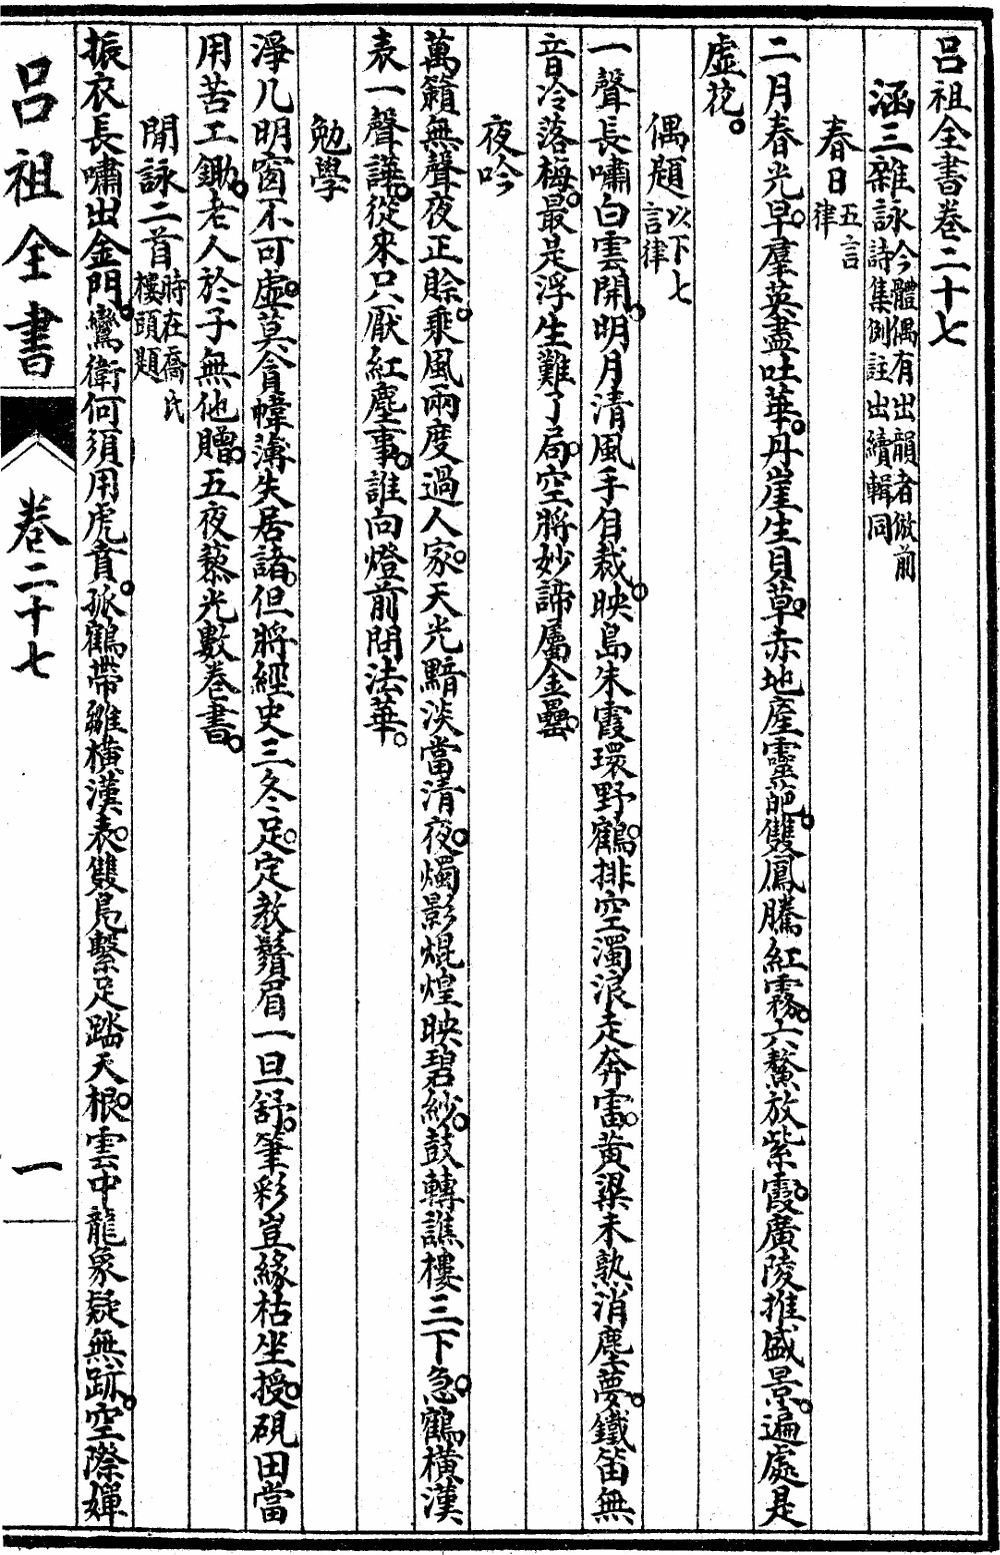 呂祖全書卷二十七
涵三雜詠今體偶有出韻者倣前詩集例註出續輯同
春日五言律
二月春光早。羣英盡吐華。丹崖生貝草。赤地產靈葩。雙鳳騰紅霧。六鰲放紫霞。廣陵推盛景。遍處是
虛花。
偶題以下七言律
一聲長嘯白雲開。明月清風手自裁。映島朱霞環野鶴。排空濁浪走奔雷。黃粱未熟消塵夢。鐵笛無
音冷落梅。最是浮生難了局。空將妙諦屬金罍。
夜吟
萬籟無聲夜正賒。乘風兩度過人家。天光黯淡當清夜。燭影焜煌映碧紗。鼓轉譙樓三下急。鶴橫漢
表一聲譁。從來只厭紅塵事。誰向燈前問法華。
勉學
淨几明窗不可虛。莫貪幃薄失居諸。但將經史三冬足。定教鬚眉一旦舒。筆彩豈緣枯坐授。硯田當
用苦工鋤。老人於子無他贈。五夜藜光數卷書。
閒詠二首時在喬氏樓頭題
振衣長嘯出金門。鸞衛何須用虎賁。孤鶴帶雛橫漢表。雙鳧繫足踏天根。雲中龍象疑無跡。空際嬋
呂祖全書
卷二十七
一